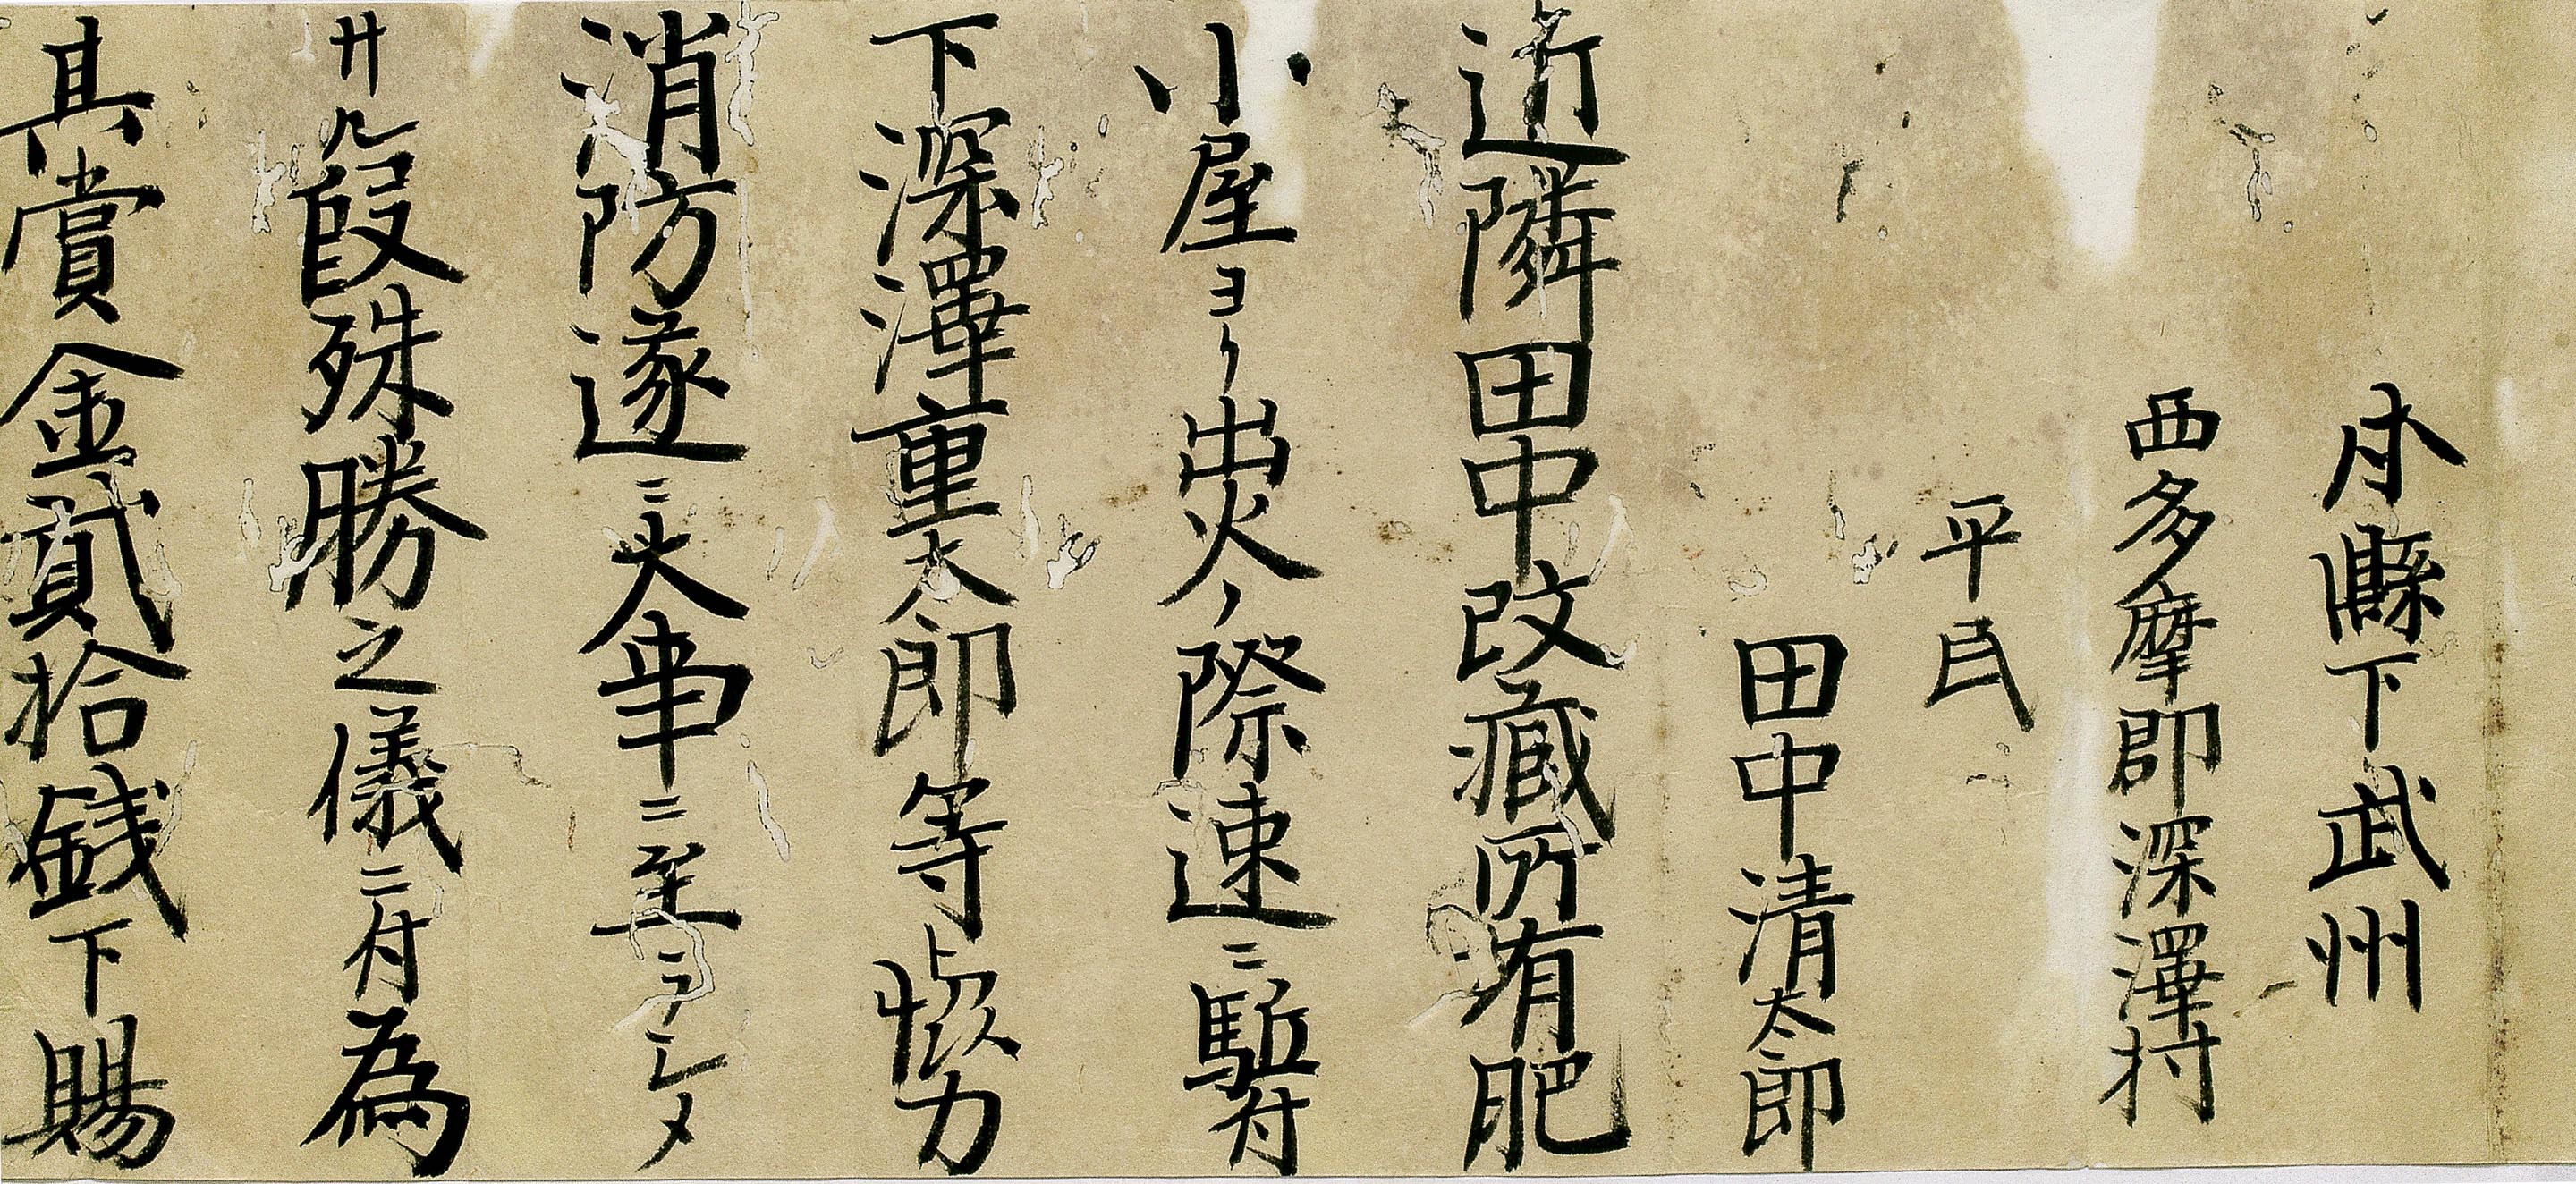 本縣下武州
西多摩郡深澤村
平民
田中清太郎
近隣田中改藏所有肥
小屋ヨリ出火ノ際速ニ駈付
下深澤重太郎等協力
消防遂ニ大事ニ至ラシメ
サル段殊勝之儀ニ付為
其賞金貳拾銭下賜